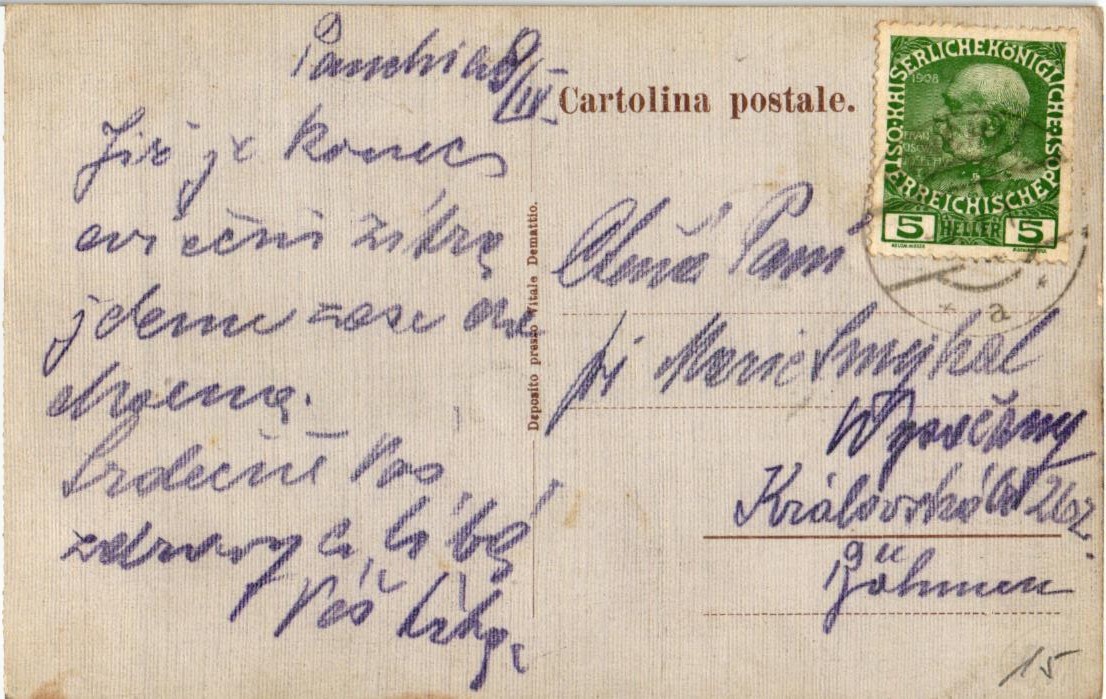 8/IV
Již je konec
cvičení zítra
jdeme zase do
Srdečně Vás
zdravy a líbá
Váš
Cartolina postale.
Deposito presso Vitale Demattio.
KAISERLICHEKÖNIGLICHE ÖSTERREICHISCHE POST
1908
5 HELLER 5
a
Ctěná Paní
pí Marie Smykal
Wysočany
Královská 262.
Böhmen
15